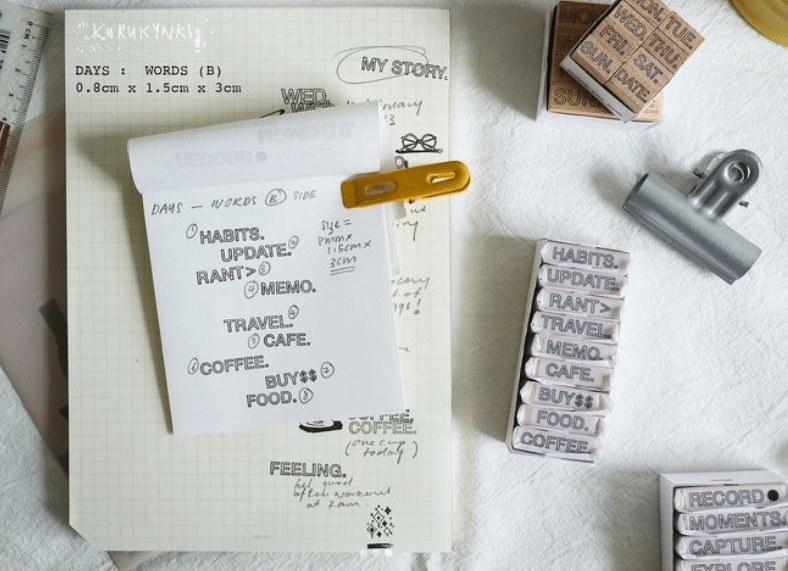 KURUKYNKI
DAYS : WORDS (B)
0.8cm x 1.5cm x 3cm
MY STORY.
WED.
DAYS — WORDS (B) SIDE
① HABITS.
UPDATE. ②
RANT> ③
④ MEMO.
TRAVEL. ④
⑤ CAFE.
⑥ COFFEE.
BUY$$ ⑦
FOOD. ⑧
size =
8mm x
1.5cm x
3cm
COFFEE.
COFFEE.
(one cup
today)
FEELING.
feel good
after workout
at 7am.
MON. TUE.
WED. THU.
FRI. SAT.
SUN. DATE
SUN
HABITS.
UPDATE
RANT>
TRAVEL.
MEMO.
CAFE.
BUY$$
FOOD.
COFFEE.
RECORD ●
MOMENTS.
CAPTURE
EXPLORE